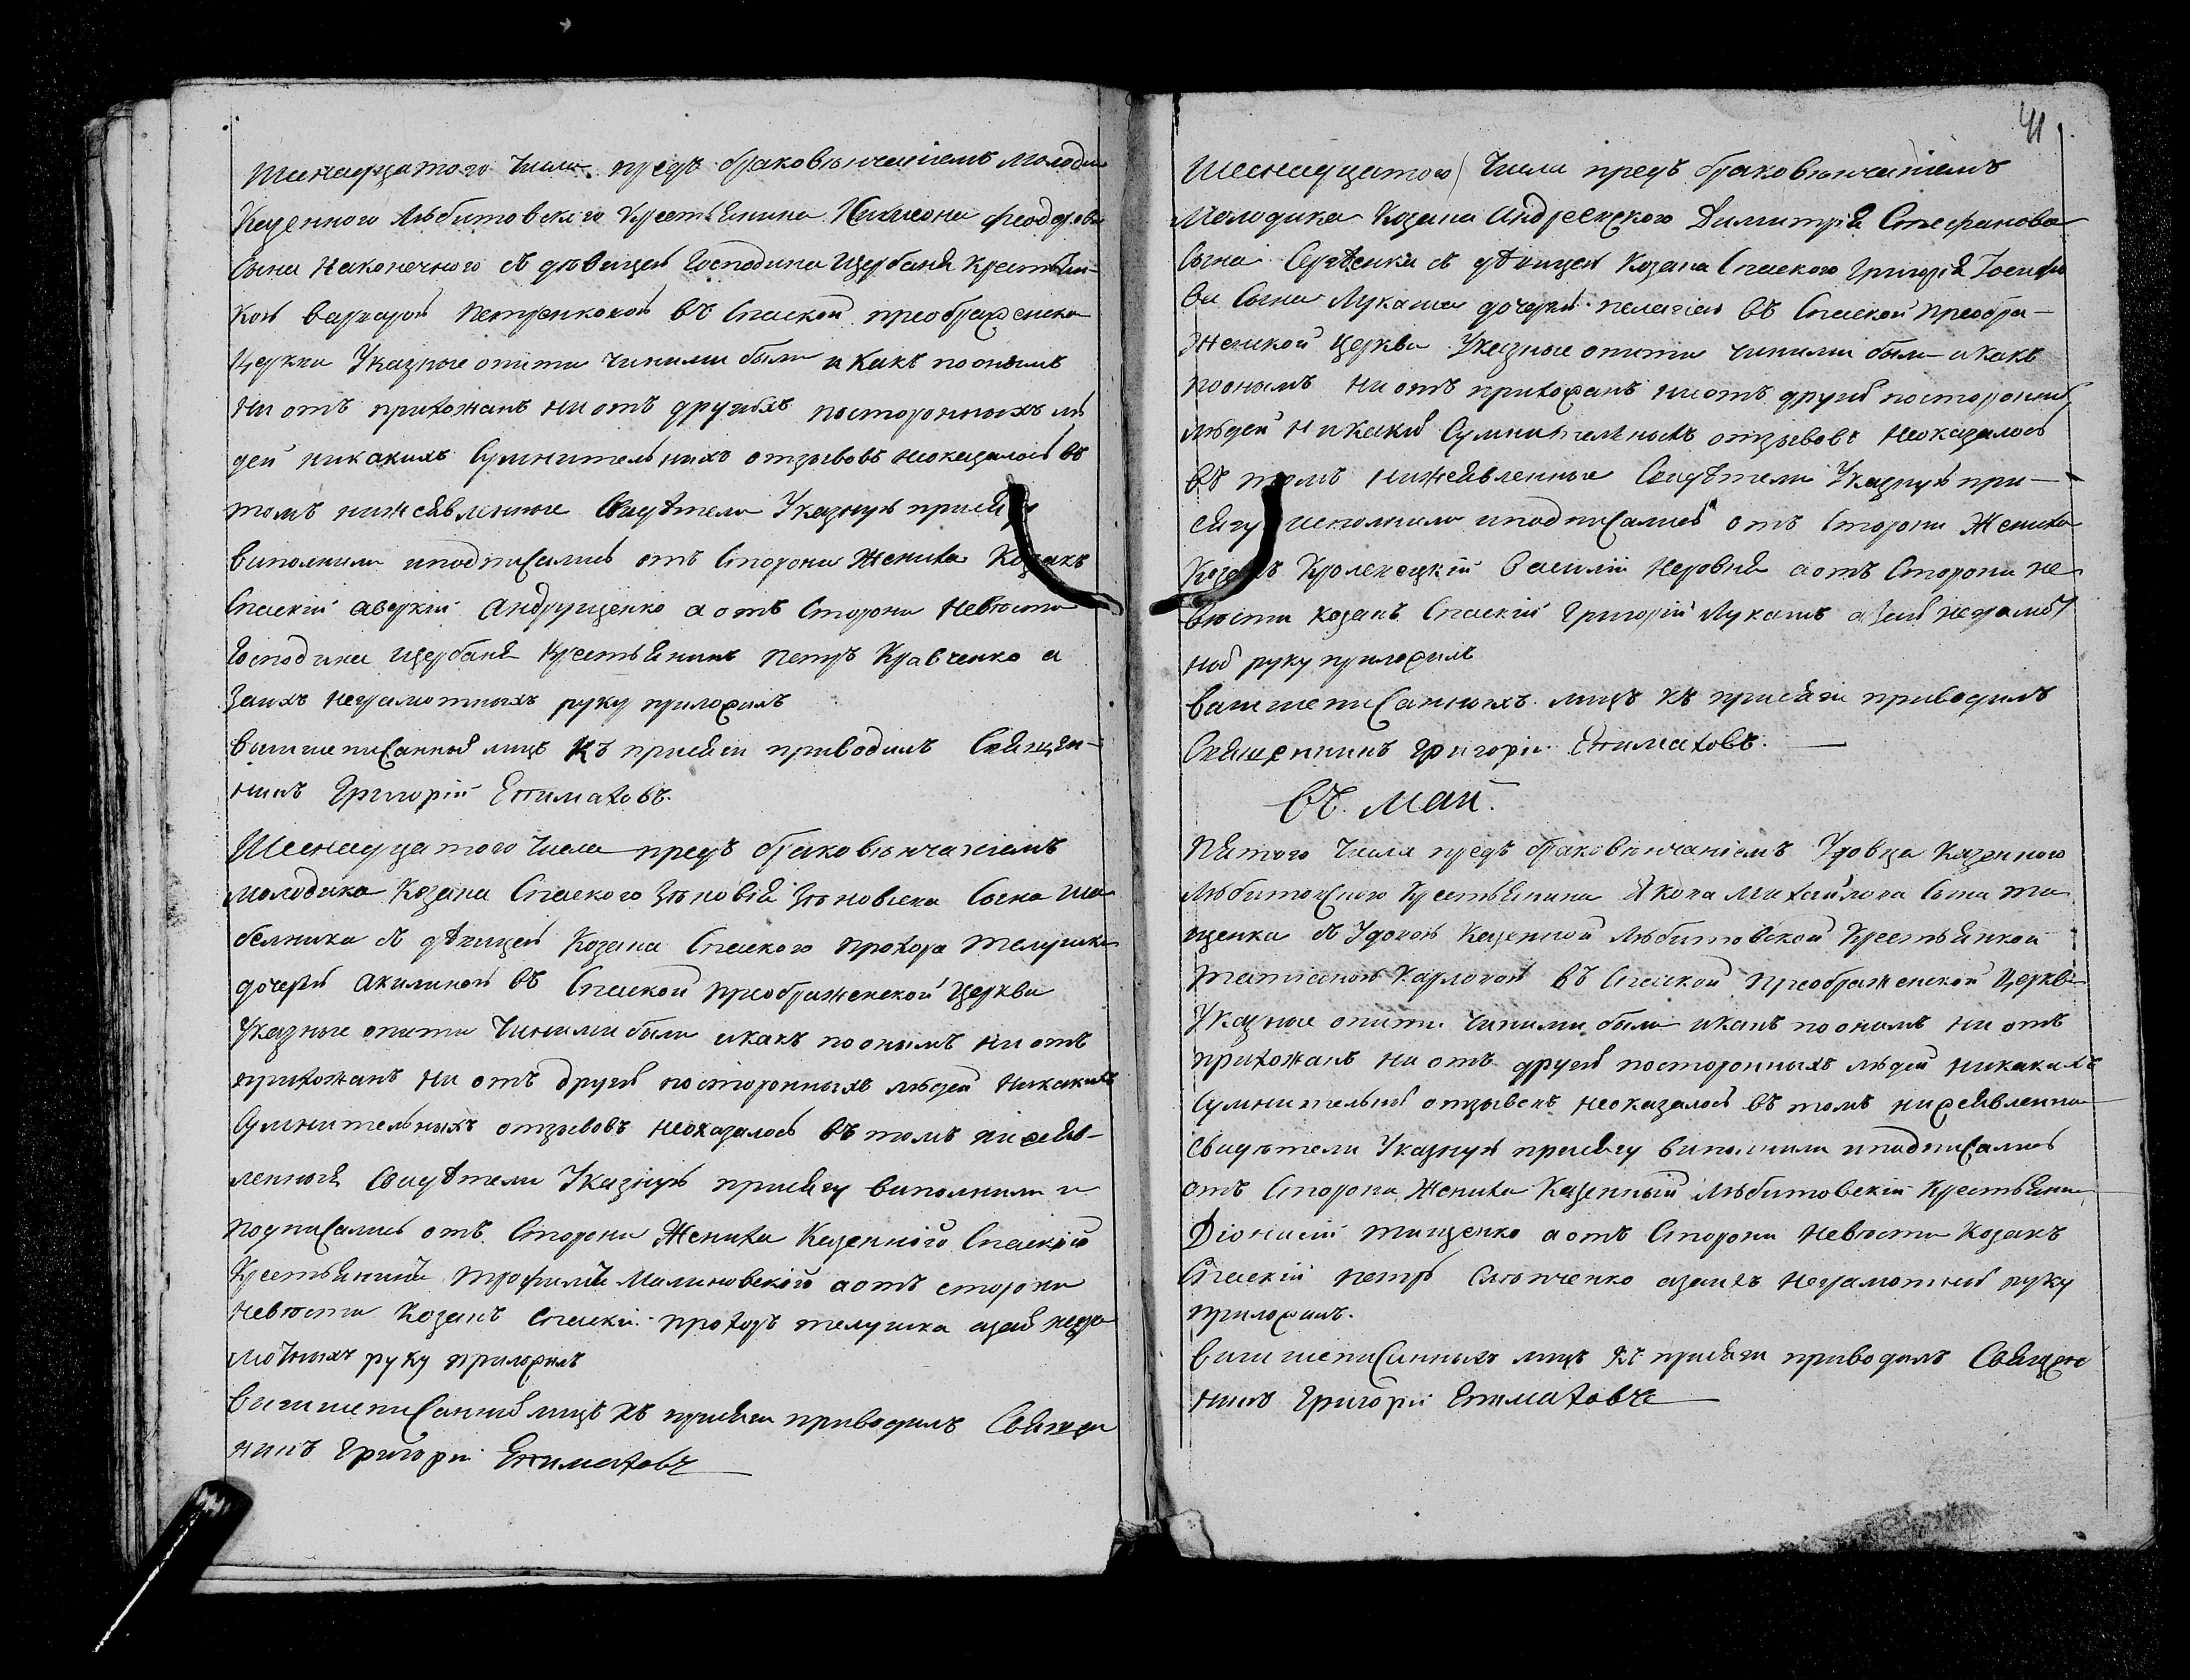 Шенадцатого числа предъ браковѣнчаніемъ Молодика
Казенного Любитовского Крестьянина Феодорова
Сына Наконечного съ дѣвицей Господина Щербаня Крестьян-
кой варварой Петренковой въ Спаской преображенской
Церкви Указные опити чиними были и какъ поонымъ
ни отъ прихожанъ ни отъ другихъ постороннихъ лю
дей никакихъ Сумнительнихъ отзывовъ неоказалось въ
томъ нижеявленные Свидѣтели Указнуя присягу
виполнили иподписались отъ Сторони Жениха Козакъ
Спаскій аверкій Андрущенко а отъ Сторони Невѣсти
Господина Щербаня Крестьянинъ Петръ Кравченко а
заихъ неграмотныхъ руку приложилъ
вышеписанный лицъ къ присяги приводилъ Священ-
никъ Григорій Епимаховъ.
Шеснадцатого числа предъ браковѣнчаніемъ
молодика Козака Спаского Зѣновія Зѣновіева Сына Ша
белника съ дѣвицей Козака Спаского Прохора Телушки
дочерей акилиной въ Спаской преображенской Церкви
Указные опити чиними были икакъ поонымъ ни отъ
прихожанъ ни отъ другій посторонныхъ людей никакихъ
Сумнительныхъ отзывовъ неоказалось въ томъ нижеяв-
ленныя Свидѣтели Указнуя присягу виполнили и
подписались отъ Сторони Жениха Казенного Спаскій
Крестьянинъ Трофимъ Малиновского аотъ сторони
невѣсти Козакъ Спаскій Прохоръ телушка азаи негра
мотныхъ руку приложилъ
вишеписанній лицъ къ присяги приводилъ Священ
никъ Григорій Епимаховъ
41
Шеснадцатого числа предъ браковѣнчаніемъ
Молодика Козака Андреевского Димитрія Стефанова
Сына Сергѣенка съ дѣвицей Козака Спаского Григорія Іосифо
ва Сына Лукаша дочерей пелагіей въ Спаской Преобра-
женской Церкви Указные опити чиними были икакъ
поонымъ ни отъ прихожанъ ниотъ другій посторонній
людей никакій Сумнительныхъ отзывовъ неоказалось
въ томъ нижеявленные Свидѣтели Указнуя при-
сягу исполнили иподписались отъ Сторони Жениха
Козакъ Кролевецкій Василій Неровня аотъ Сторони не
вѣсти Козакъ Спаскій Григорій Лукашъ азаий неграмот
ной руку приложилъ
вишеписанныхъ лицъ къ присяги приводилъ
Священникъ Григорій Епимаховъ.
въ май.
Пятого числа предъ браковѣнчаніемъ Удовца Казенного
Любитовского Крестьянина Якова Михайлова Сына Ти
щенка съ Удовой Казенной Любитовской Крестьянкой
Татіаной Карповой въ Спаской Преображенской Церкви
Указные опити чиними были икакъ поонымъ ни отъ
прихожанъ ни отъ другій посторонныхъ людей никакихъ
Сумнительный отзывовъ неоказалось въ томъ нижеявленни
свидѣтели Указнуя присягу виполнили иподписались
отъ Сторони Жениха Казенный Любитовскій Крестьянин
Діонисій Тищенко аотъ Сторони Невѣсти Козакъ
Спаскій Петръ азаихъ неграмотний руку
приложилъ.
вишеписанныхъ лицъ къ присяги приводилъ Священ
никъ Григорій Епимаховъ